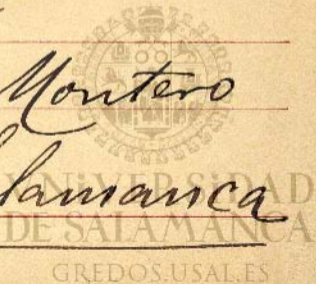 Montero
Salamanca
VNiVERSiDAD
DE SALAMANCA
GREDOS.USAL.ES